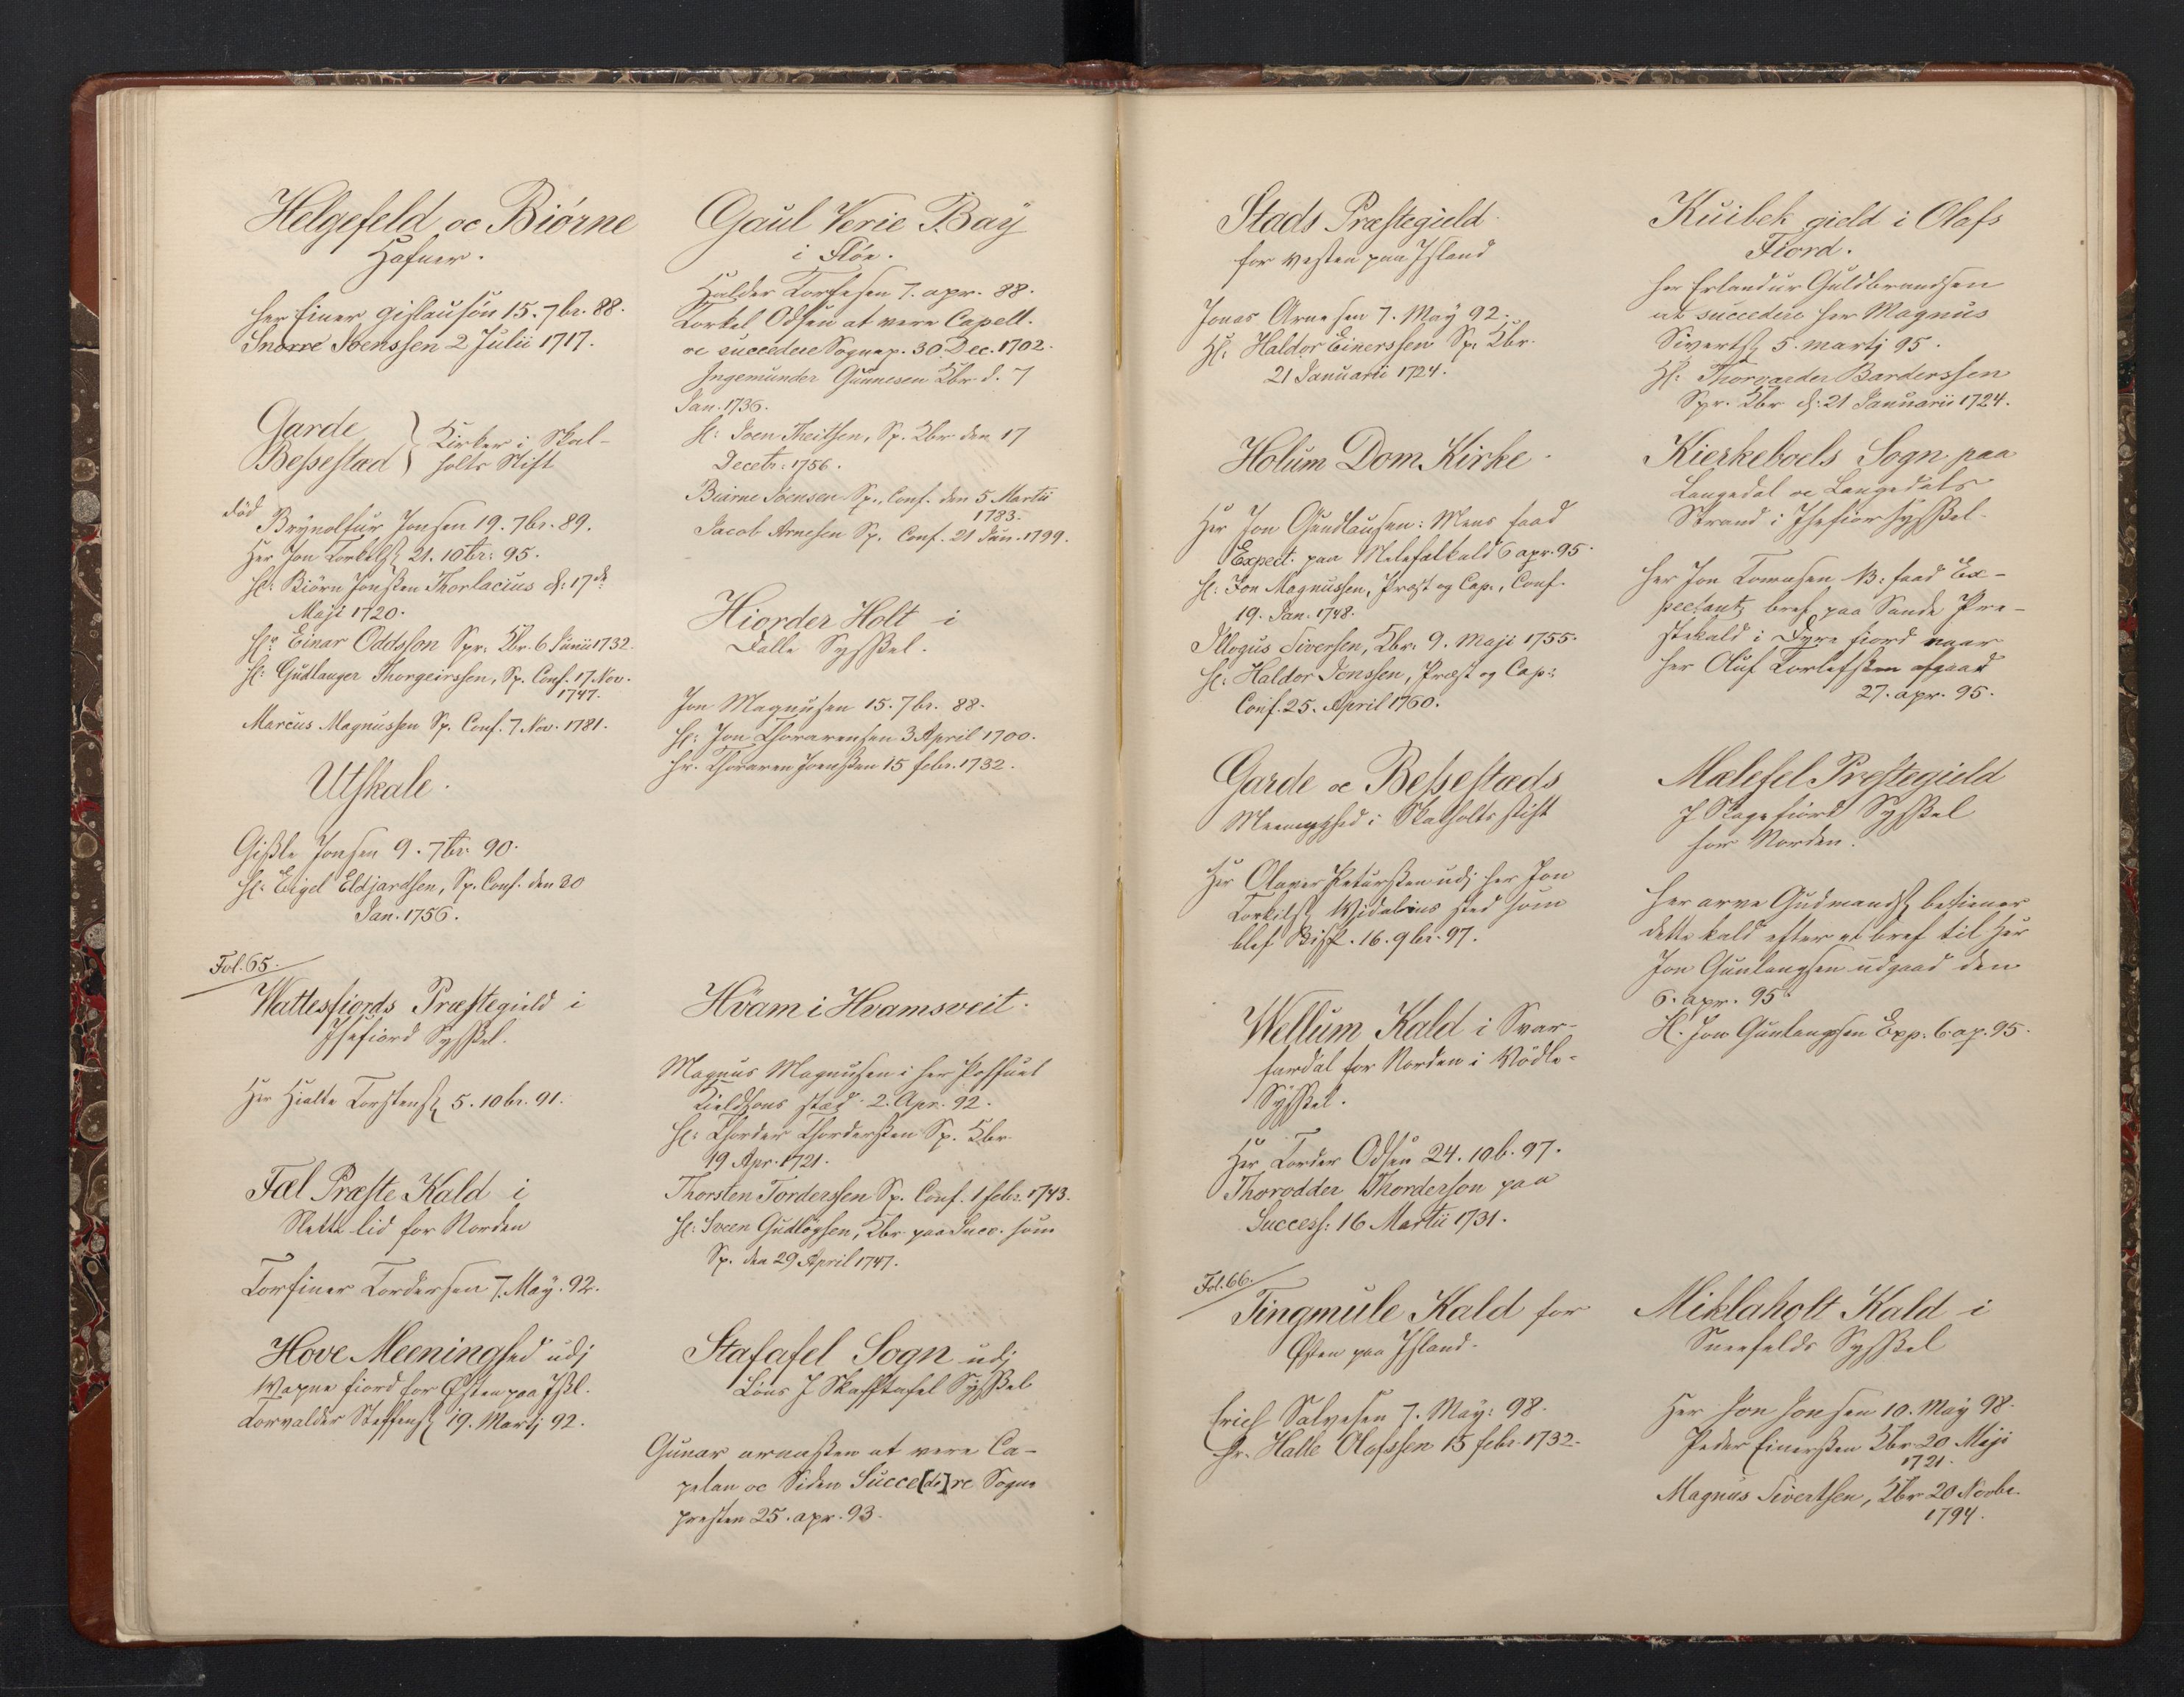 Helgefeld oc Biörne
Hafner.
her Einer gislausøn 15. 7br. 88.
Snorre Joenssen 2 Julii 1717.
Garde
Bessestæd } Kirker i Skal-
holts Stift
død
Brynolfur Jonsen 19. 7br. 89.
Her Jon Torkels. 21. 10br: 95.
Hr: Biörn Jonssen Thorlacius d: 17de
Maji 1720.
Hr: Einar Oddsson Spr: Kbr. 6 Junii 1732.
Hr: Gudlauger Thorgeirssen, Sp. Conf. 17 Nov.
1747.
Marcus Magnussen Sp. Conf. 7. Nov. 1781.
Utskale.
Gissle Jonsen 9. 7br 90.
Hr: Eigel Eldjardsen, Sp. Conf. den 30
Jan. 1756.
Fol. 65.
Wattesfiords Præstegield i
Isefiord Syssel.
Her Hialte Torstens. 5. 10br. 91.
Fæl Præste Kald i
Slette lid for Norden
Torfiner Tordersen 7. May. 92.
Hove Meeninghed udj
Wapne fiord for Østen paa Isl.
Torvalder Steffens. 19. Martj 92.
Gaul Verie Bay
i Flöe.
Halder Torfesen 7. apr. 88.
Torkel Odsen at være Capell.
oc succedere Sognep. 30. Dec. 1702.
Ingemunder Gunnesen Kbr d. 7
Jan. 1736.
Hr: Joen Theitsen, Sp. Kbr den 17
Decebr: 1756.
Biarne Joensen Sp., Conf. den 5 Martii
1783.
Jacob Arnesen Sp. Conf. 21 Jan. 1799.
Hiorder Holt i
Dalle Syssel.
Jon Magnusen 15. 7br. 88.
Hr: Jon Thorarensen 3 April 1700.
Hr. Thoraren Joenssen 15 febr. 1732.
Hvam i Hvamsveit.
Magnus Magnusen i her Poffuel
Kieldsons stæd 2. Apr. 92.
Hr: Thorder Thorderssen Sp. Kbr
19 Apr. 1721.
Thorsten Torderssen Sp. Conf. 1 febr. 1743.
Hr: Sveen Gudlögsen, Kbr paa Succ. som
Sp. den 29 April 1747.
Stafafel Sogn udj
Lons I Skafftafel Syssel
Gunar arnassen at være Ca-
pelan oc siden Succe[de]re Sogne
presten 25. apr. 93.
Stads Præstegield
for vesten paa Island
Jonas Arnesen 7. May 92.
Hr: Haldor Einerssen Sp. Kbr.
21 Januarii 1724.
Holum Dom Kirke.
Her Jon Gundlausen: Mens faad
Expect. paa Melefalkald 6 apr. 95.
Hr: Jon Magnussen, Præst og Cap., Conf.
19. Jan. 1748.
Illogus Siversen, Kbr. 9. Maji 1755.
Hr: Haldor Jonssen, Præst og Cap:
Conf. 25. April 1760.
Garde oc Bessestads
Meenighed i Skalholts stift
Her Olaver Peturssen udj her Jon
Torkils. Widalius sted som
blef Bisp. 16. 9br. 97.
Wellum Kald i Svar-
fardal for Norden i Vödle-
Syssel.
Her Torder Odsen 24. 10b. 97.
Thorodder Thorderson paa
Success: 16 Martii 1731.
Fol. 66.
Tingmule Kald for
Østen paa Island.
Erich Salvesen 7. May: 98.
Hr. Halle Olafssen 15 febr. 1732.
Kuibek gield i Olafs
Fiord.
her Erlandur Guldbrandsen
at succedere her Magnus
Siverts. 5. martj 95.
Hr: Thorvarder Barderssen
Spr. Kbr d: 21 Januarii 1724.
Kierkeboels Sogn paa
Langedal oc Langedals
Strand i Isefior Syssel.
her Jon Tomasen NB: faad Ex-
pectants bref paa Sande Pre-
stekald i Dyre fiord naar
her Oluf Torlefssen afgaad
27. apr. 95.
Mælefel Prestegield
I Skagefiord Syssel
for Norden.
her arve Gudmands. betiener
dette kald efter et bref til Her
Jon Gunlaugsen udgaad den
6. apr. 95.
H. Jon Gunlaugsen Exp. 6. ap. 95.
Miklaholt Kald i
Sneefelds Syssel
Her Jon Jonsen 10. May 98.
Peder Einerssen Kbr 20 Maji
1721.
Magnus Sivertsen, Kbr 20 Novbr.
1794.